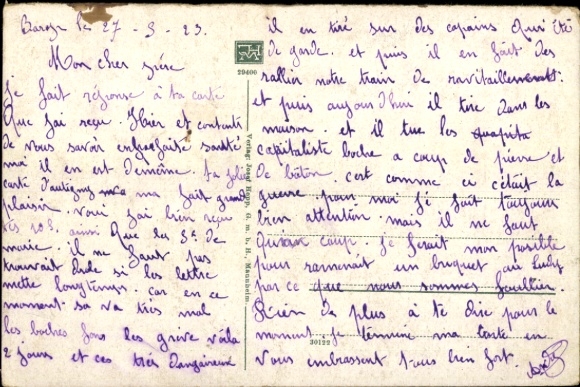 le 27 - 3 - 23.
Mon cher père
je fait réponse à ta carte
Que j'ai reçu. Hier et contant
de vous savoir en parfaite santé
moi il en est de même. ta jolie
carte d'autigny ma fait grand
plaisir. voui j'ai bien reçu
les 10f. ainsi Que la 5f de
marie. il ne faut pas
trouvait dude si les lettre
mette longtemps. car en ce
moment sa va très mal
les boches font les grève voila
2 jours et ces très dangaireux
29400
Verlag: Josef Hupp, G. m. b. H., Mannheim.
30122
il en tiré sur des copains qui été
de garde. et puis il en fait des
rallier notre train de ravitaillement.
et puis aujourd'hui il tire dans les
maison. et il tue les
capitaliste boche a coup de pierre et
de bâton. c'est comme ci c'était la
guerre. pour moi je fait toujours
bien attention. mais il ne faut
Qu'un coup. je ferait mon posible
pour ramenait un briquet au
par ce que nous sommes
Rien de plus à te dire pour le
moment je termine ma carte en
vous embrassant tous bien fort.